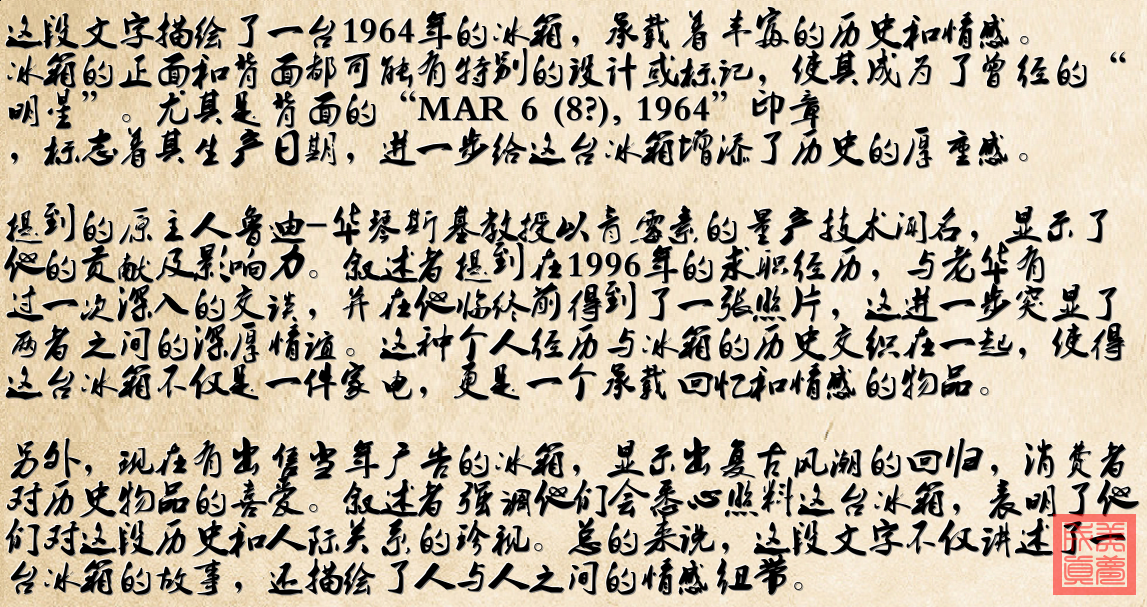 这段文字描绘了一台1964年的冰箱，承载着丰富的历史和情感。
冰箱的正面和背面都可能有特别的设计或标记，使其成为了曾经的“
明星”。尤其是背面的“MAR 6 (8?), 1964”印章
，标志着其生产日期，进一步给这台冰箱增添了历史的厚重感。
提到的原主人鲁迪-华琴斯基教授以青霉素的量产技术闻名，显示了
他的贡献及影响力。叙述者提到在1996年的求职经历，与老华有
过一次深入的交谈，并在他临终前得到了一张照片，这进一步突显了
两者之间的深厚情谊。这种个人经历与冰箱的历史交织在一起，使得
这台冰箱不仅是一件家电，更是一个承载回忆和情感的物品。
另外，现在有出售当年广告的冰箱，显示出复古风潮的回归，消费者
对历史物品的喜爱。叙述者强调他们会悉心照料这台冰箱，表明了他
们对这段历史和人际关系的珍视。总的来说，这段文字不仅讲述了一
台冰箱的故事，还描绘了人与人之间的情感纽带。
美梦成真